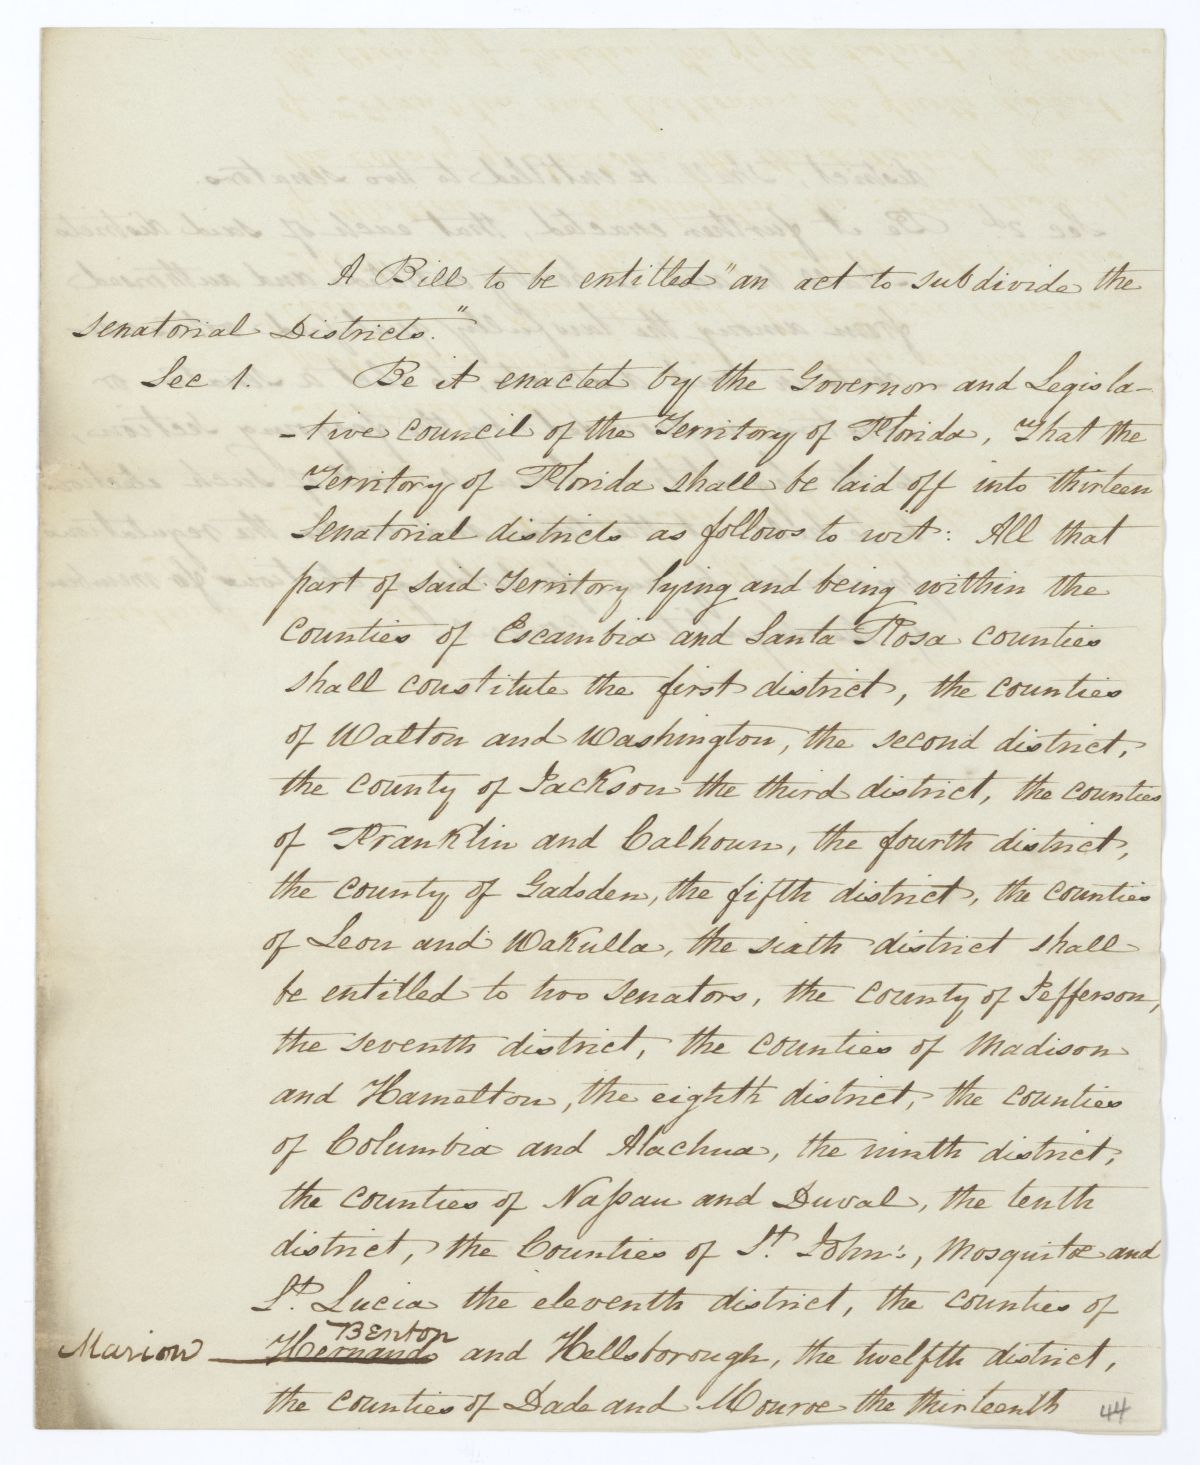 A Bill to be entitled "an act to subdivide the
senatorial Districts."
Sec 1. Be it enacted by the Governor and Legisla-
-tive council of the Territory of Florida, That the
Territory of Florida shall be laid off into thirteen
Senatorial districts as follows to wit: All that
part of said Territory lying and being within the
counties of Escambia and Santa Rosa counties
shall constitute the first district, the counties
of Walton and Washington, the second district,
the county of Jackson the third district, the counties
of Franklin and Calhoun, the fourth district,
the county of Gadsden, the fifth district, the counties
of Leon and Wakulla, the sixth district shall
be entitled to two senators, the county of Jefferson,
the seventh district, the counties of Madison
and Hamelton, the eighth district, the counties
of Columbia and Alachua, the ninth district,
the counties of Nassau and Duval, the tenth
district, the Counties of St. John's, Mosquitoe and
St. Lucia the eleventh district, the counties of
Benton
Marion Hernando and Hellsborough, the twelfth district,
the counties of Dade and Monroe the thirteenth
44